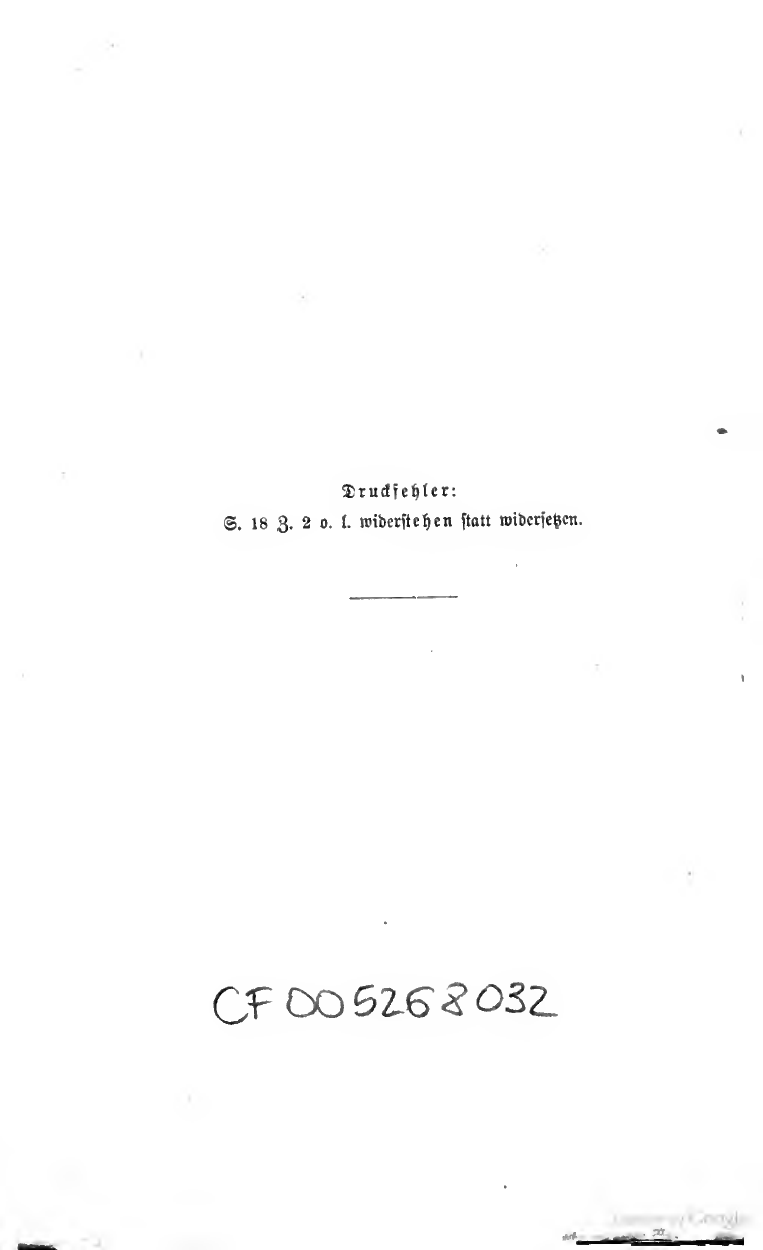 Druckfehler:
S. 18 Z. 2 o. l. widerstehen statt widersetzen.
CF005268032
Google